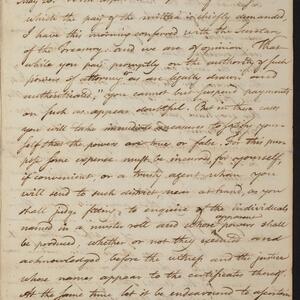 which the pay of the militia is chiefly demanded,
I have this morning conferred with the Secretary
of the Treasury: and we are of opinion, that
while you pay promptly on the authority of such
powers of attorney as are legally drawn, and
authenticated, you cannot but suspend payments
on such as appear doubtful. But in these cases
you will take immediate measures to satisfy your
self that the powers are true or false. For this pur
pose some expense must be incurred, for yourself,
if convenient, or a trusty agent whom you
will send to such district near at hand, as you
shall judge fitten, to enquire of the individuals
named in a muster roll and whose apparent powers shall
be produced, whether or not they executed and
acknowledged before the witness and the justice
whose names appear to the certificates thereof.
At the same time let it be endeavoured to ascertain